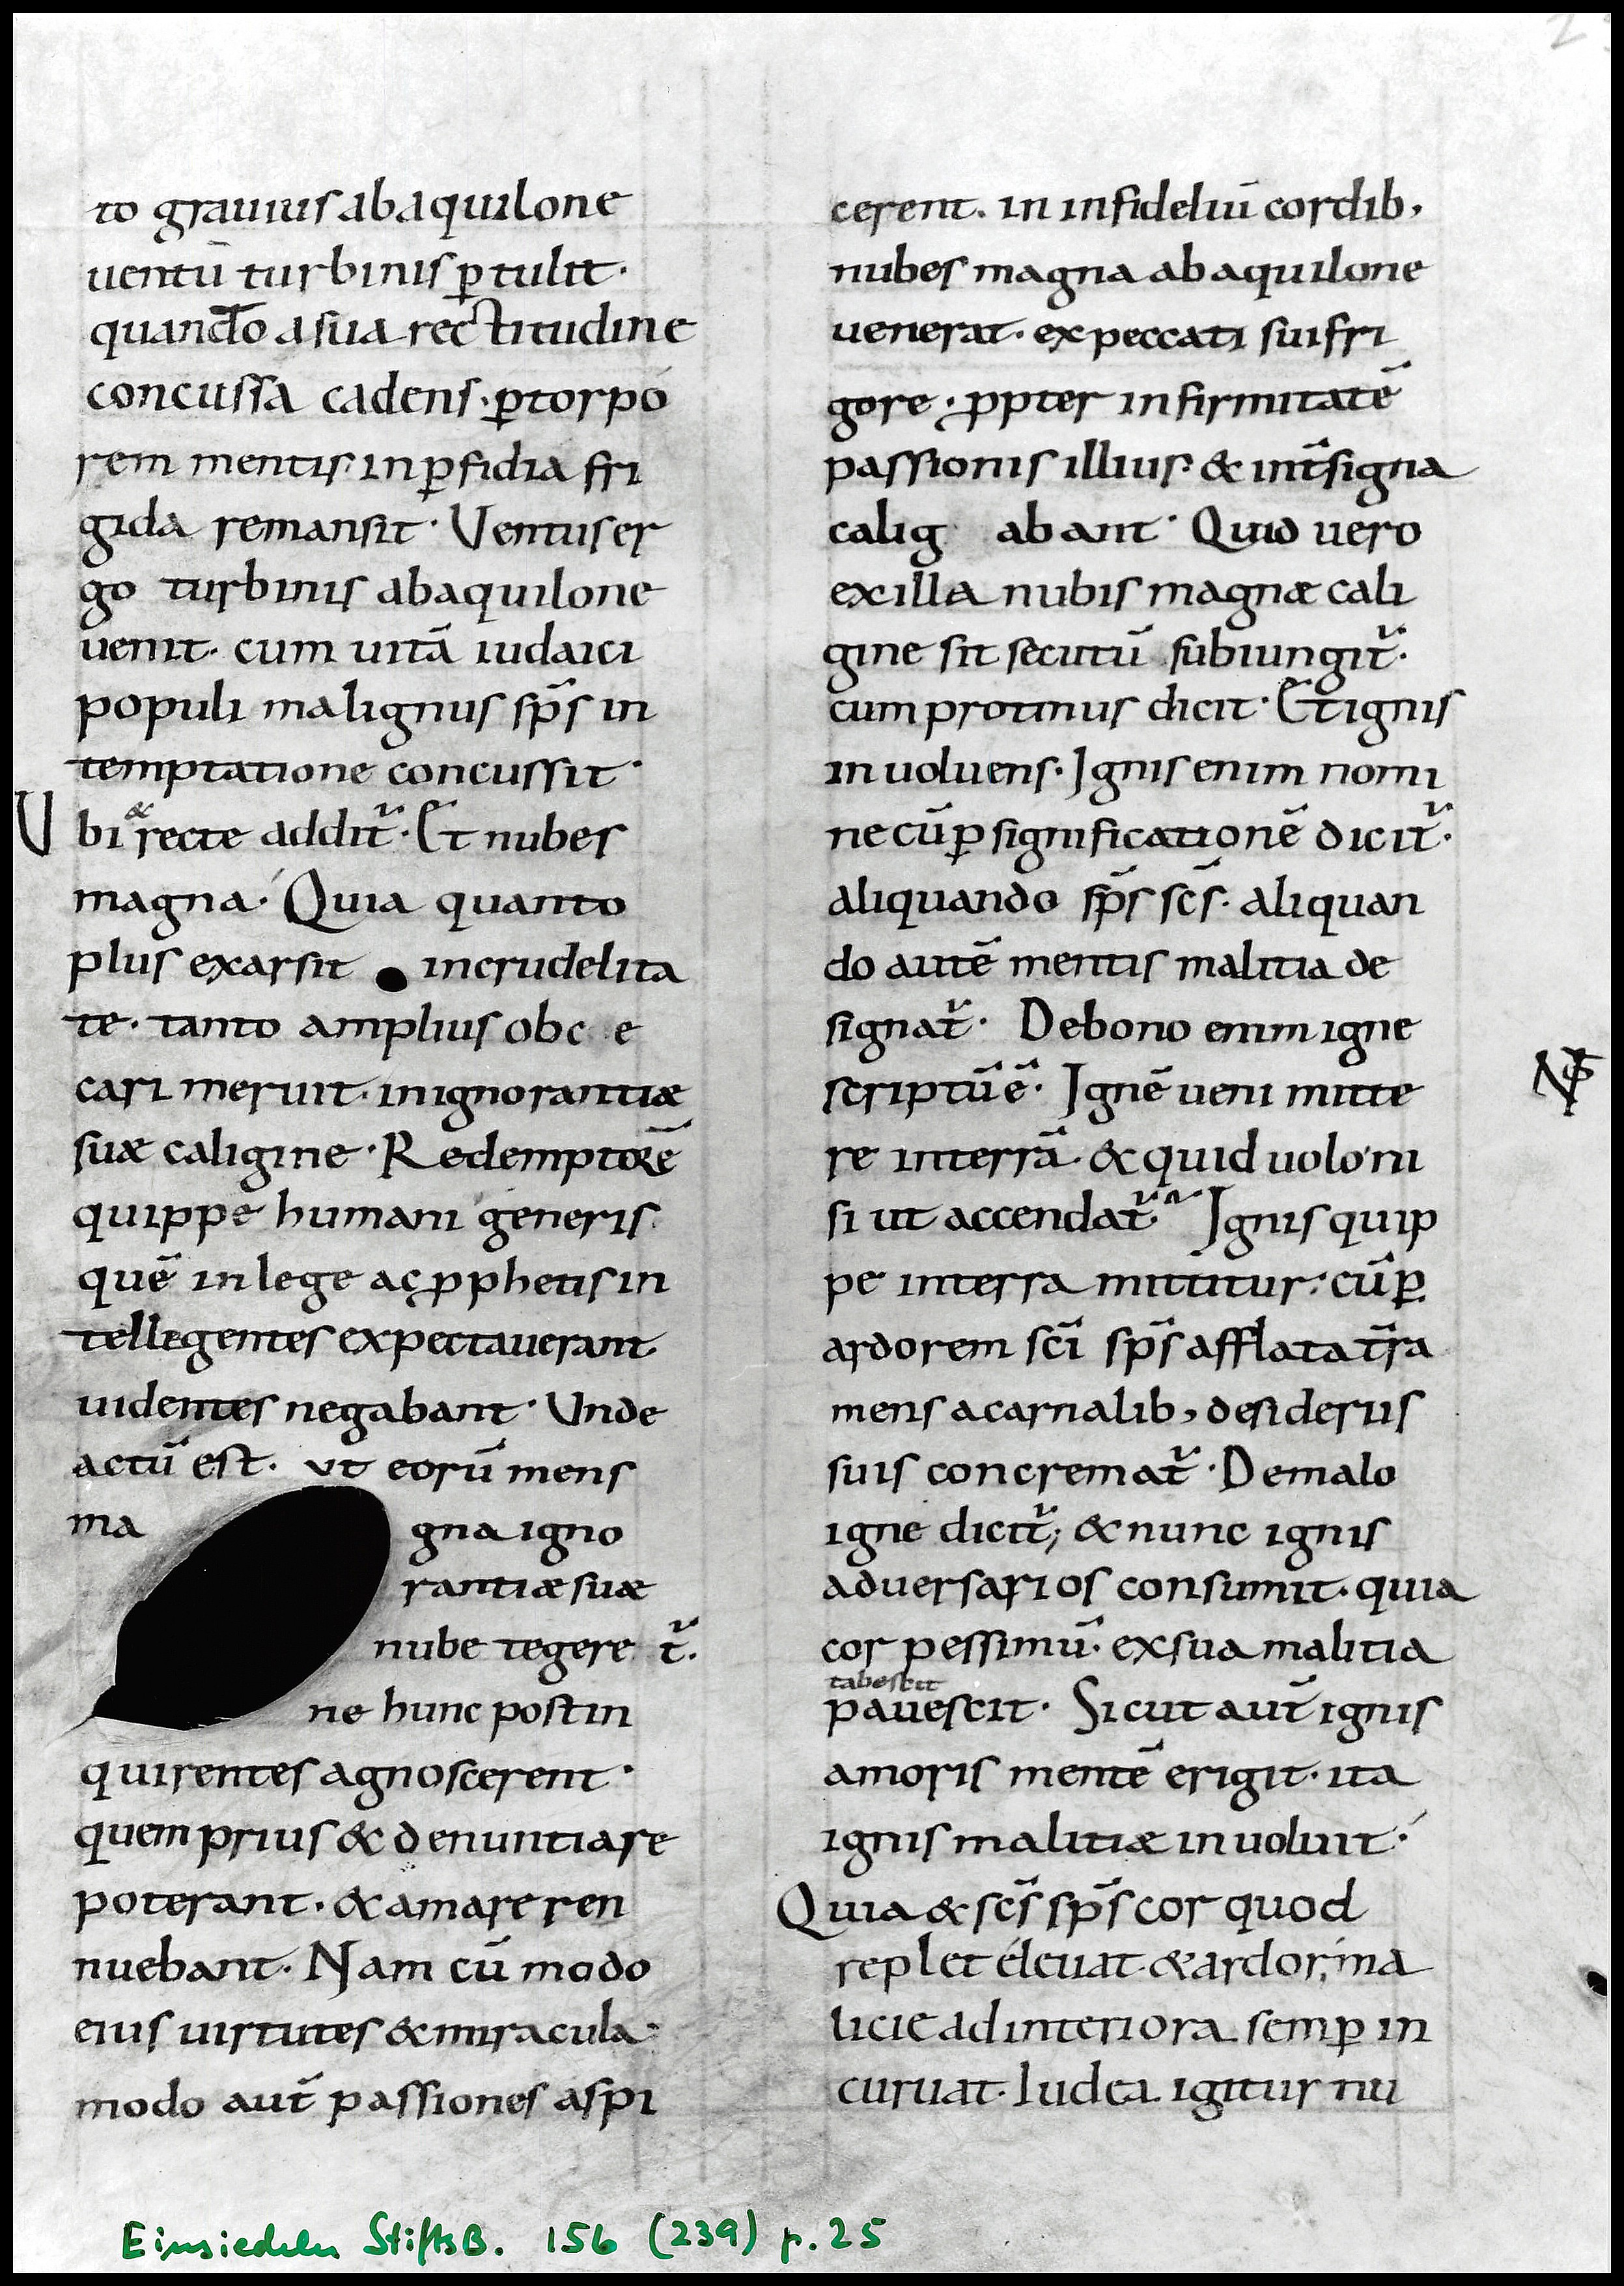 to grauius ab aquilone
uentū turbinis ꝑtulit·
quando a sua rectitudine
concussa cadens· ꝑ torpo
rem mentis· in ꝑfidia fri
gida remansit· Ventus er
go turbinis ab aquilone
uenit· cum uitā iudaici
populi malignus sp̄s in
temptatione concussit·
Vbi & recte addit᷑· Et nubes
magna· Quia quanto
plus exarsit in crudelita
te· tanto amplius obc e
cari meruit· in ignorantiæ
suæ caligine· Redemptorē
quippe humani generis
quē in lege ac ꝓphetis in
tellegentes expectauerant
uidentes negabant· Unde
actū est· ut eorū mens
ma gna igno
rantiæ suæ
nube tegere t᷑·
ne hunc post in
quirentes agnoscerent·
quem prius & denuntiare
poterant· & amare ren
nuebant· Nam cū modo
eius uirtutes & miracula·
modo aut̄ passiones aspi
cerent· in infideliū cordib,
nubes magna ab aquilone
uenerat· ex peccati sui fri
gore· ꝓpter infirmitatē
passionis illius· & int̄ signa
calig abant· Quid uero
ex illa nubis magnæ cali
gine sit secutū subiungit᷑·
cum protinus dicit· Et ignis
inuoluens· Ignis enim nomi
ne cū ꝑ significationē dicit᷑·
aliquando sp̄s sc̄s· aliquan
do autē mentis malitia de
signat᷑· De bono enim igne
scriptū ē· Ignē ueni mitte
re in terrā· & quid uolo ni
si ut accendat᷑ Ignis quip
pe in terra mittitur· cū ꝑ
ardorem sc̄i sp̄s afflata t̄ra
mens a carnalib, desideriis
suis concremat᷑· De malo
igne dicit᷑; & nunc ignis
aduersarios consumit· quia
cor pessimū· ex sua malitia
tabescit
pauescit· Sicut aut̄ ignis
amoris mentē erigit· ita
ignis malitiæ inuoluit·
Quia & sc̄s sp̄s cor quod
replet eleuat· & ardor ma
licie ad interiora semꝑ in
curuat· Iudea igitur nu
Einsiedeln StiftsB. 156 (239) p. 25